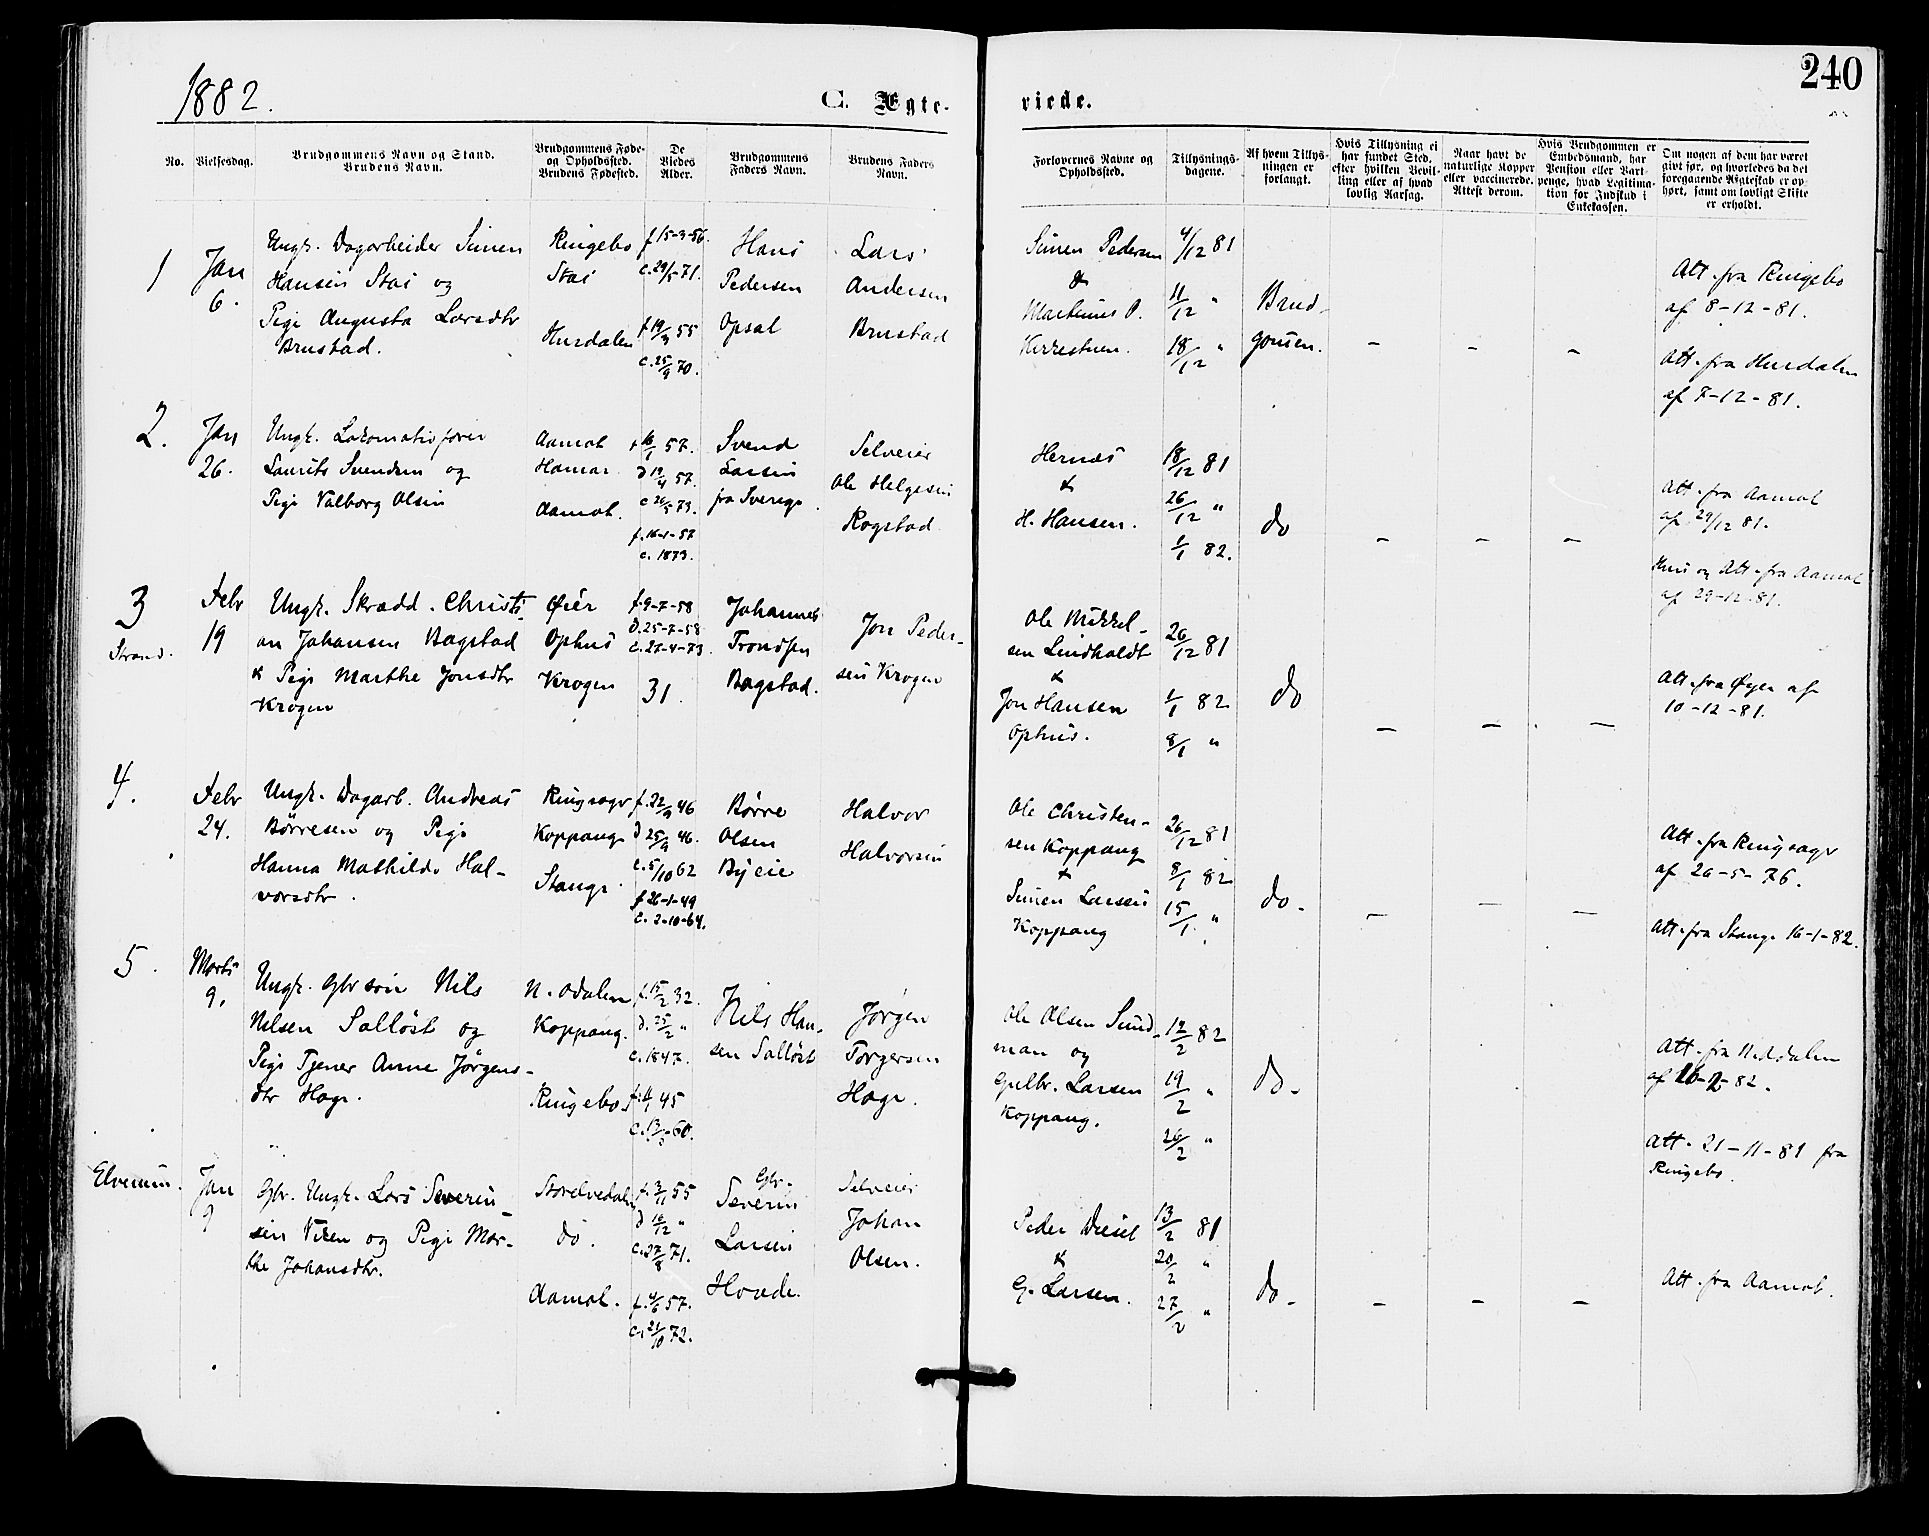 1882.
C. Ægte-
viede.
240
No.
Vielsesdag.
Brudgommens Navn og Stand.
Brudens Navn.
Brudgommens Føde-
og Opholdssted.
Brudens Fødested.
De
Viedes
Alder.
Brudgommens
Faders Navn.
Brudens Faders
Navn.
Forlovernes Navne og
Opholdssted.
Tillysnings-
dagene.
Af hvem Tillys-
ningen er
forlangt.
Hvis Tillysning ei
har fundet Sted,
efter hvilken Bevil-
ling eller af hvad
lovlig Aarsag.
Naar havt de
naturlige Kopper
eller vaccinerede.
Attest derom.
Hvis Brudgommen er
Embedsmand, har
Pension eller Vart-
penge, hvad Legitima-
tion for Indskud i
Enkekassen.
Om nogen af dem har været
givt før, og hvorledes da det
foregaaende Ægteskab er op-
hørt, samt om lovligt Skifte
er erholdt.
1
Jan
6.
Ungk. Dagarbeider Simen
Hansen Stai og
Pige Augusta Larsdtr
Brustad.
Ringebo
Stai
Hurdalen
f 15-3-56.
c. 29/5 71.
f 19/3 55
c. 25/9 70.
Hans
Pedersen
Opsal
Lars
Andersen
Brustad
Simen Pedersen
&
Martinus P.
4/12 81
11/12 "
18/12 "
Brud-
gomen.
-
-
-
Att. fra Ringebo
af 8-12-81.
Att. fra Hurdalen
af 7-12-81.
2.
Jan
26.
Ungk. Lokomotivfører
Laurits Svendsen og
Pige Valborg Olsen
Aamot
Hamar
Aamot.
16/1 57.
d 19/4 57.
c 26/5 73.
f. 16-1-57
c. 1873.
Svend
Larsen
fra Sverige.
Selveier
Ole Helgesen
Rogstad
Hernæs
&
H. Hansen.
18/12 81
26/12 "
1/1 82.
do
-
-
-
Att. fra Aamot
af 29/12 81.
og Att. fra Aamot
af 29-12-81.
3
Strand.
Febr
19
Ungk. Skrædd. Christi-
an Johansen Bagstad
& Pige Marthe Jonsdtr
Krogen
Øier
Ophus
Krogen
f. 9-7-58
d. 25-7-58
c. 27-4-73.
31.
Johannes
Trondsen
Bagstad.
Jon Peder-
sen Krogen
Ole Mikkel-
sen Lindholdt
&
Jon Hansen
Ophus.
26/12 81
1/1 82
8/1 "
do
-
-
-
Att. fra Øyer af
10-12-81.
4.
Febr
24.
Ungk. Dagarb. Andreas
Børresen og Pige
Hanna Mathilde Hal-
vorsdtr.
Ringsager
Koppang
Stange.
f. 22/9 46
d 25/9 46.
c. 5/10 62
f 26-1-49
c. 2-10-64.
Børre
Olsen
Byeie
Halvor
Halvorsen
Ole Christen-
sen Koppang
&
Simen Larsen
Koppang
26/12 81
8/1 82
15/1 "
do.
-
-
-
Att. fra Ringsager
af 20-5-76.
Att. fra Stange 16-1-82.
5.
Marts
9.
Ungk. Gbrsøn Nils
Nilsen Salløst og
Pige Tjener Anne Jørgens-
dtr Hage.
N. Odalen
Koppang.
Ringebo
f. 15/2 32.
d. 25/2 "
c. 1847.
45
60.
Nils Han-
sen Salløst
Jørgen
Torgersen
Hage.
Ole Olsen Sund-
man og
Gulbr. Larsen
Koppang.
12/2 82
19/2 "
26/2 "
do.
Att. fra
af 16-2-82.
Att. 21-11-81 fra
Ringebo.
Elverum.
Jan
9
Gbr. Ungk. Lars Severin-
sen Veen og Pige Mar-
the Johansdtr.
Storelvedalen
do.
Aamot.
f. 3/11 55
d 16/12 "
c. 27/8 71.
f. 4/6 57.
c. 21/10 72.
Gbr.
Severin
Larsen
Hovde.
Selveier
Johan
Olsen.
Peder Diesel
&
G. Larsen.
13/2 81
20/2 "
27/2 "
do.
-
-
-
Att. fra Aamot.